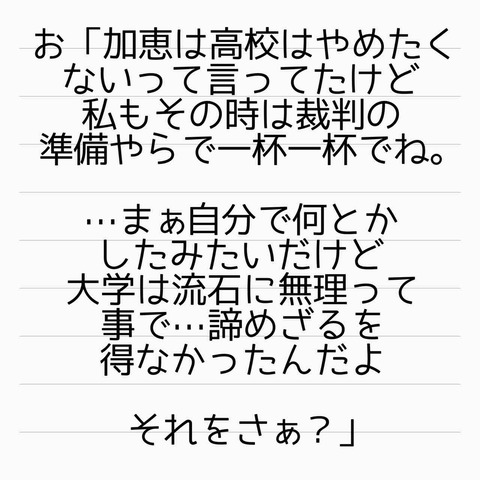 お「加恵は高校はやめたく
ないって言ってたけど
私もその時は裁判の
準備やらで一杯一杯でね。
…まぁ自分で何とか
したみたいだけど
大学は流石に無理って
事で…諦めざるを
得なかったんだよ
それをさぁ？」